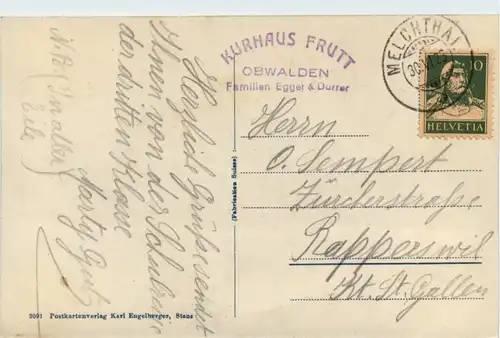 Herzliche Grüße sendet
Ihnen von der Schulreise
der dritten Klasse
Marty
N.B. In aller
Eile
KURHAUS FRUTT
OBWALDEN
Familien Egger & Durrer
MELCHTHAL
10
HELVETIA
(Fabrication Suisse)
Herrn
O. Sempert
Zürcherstraße
Rapperswil
Kt. St. Gallen
3091 Postkartenverlag Karl Engelberger, Stans